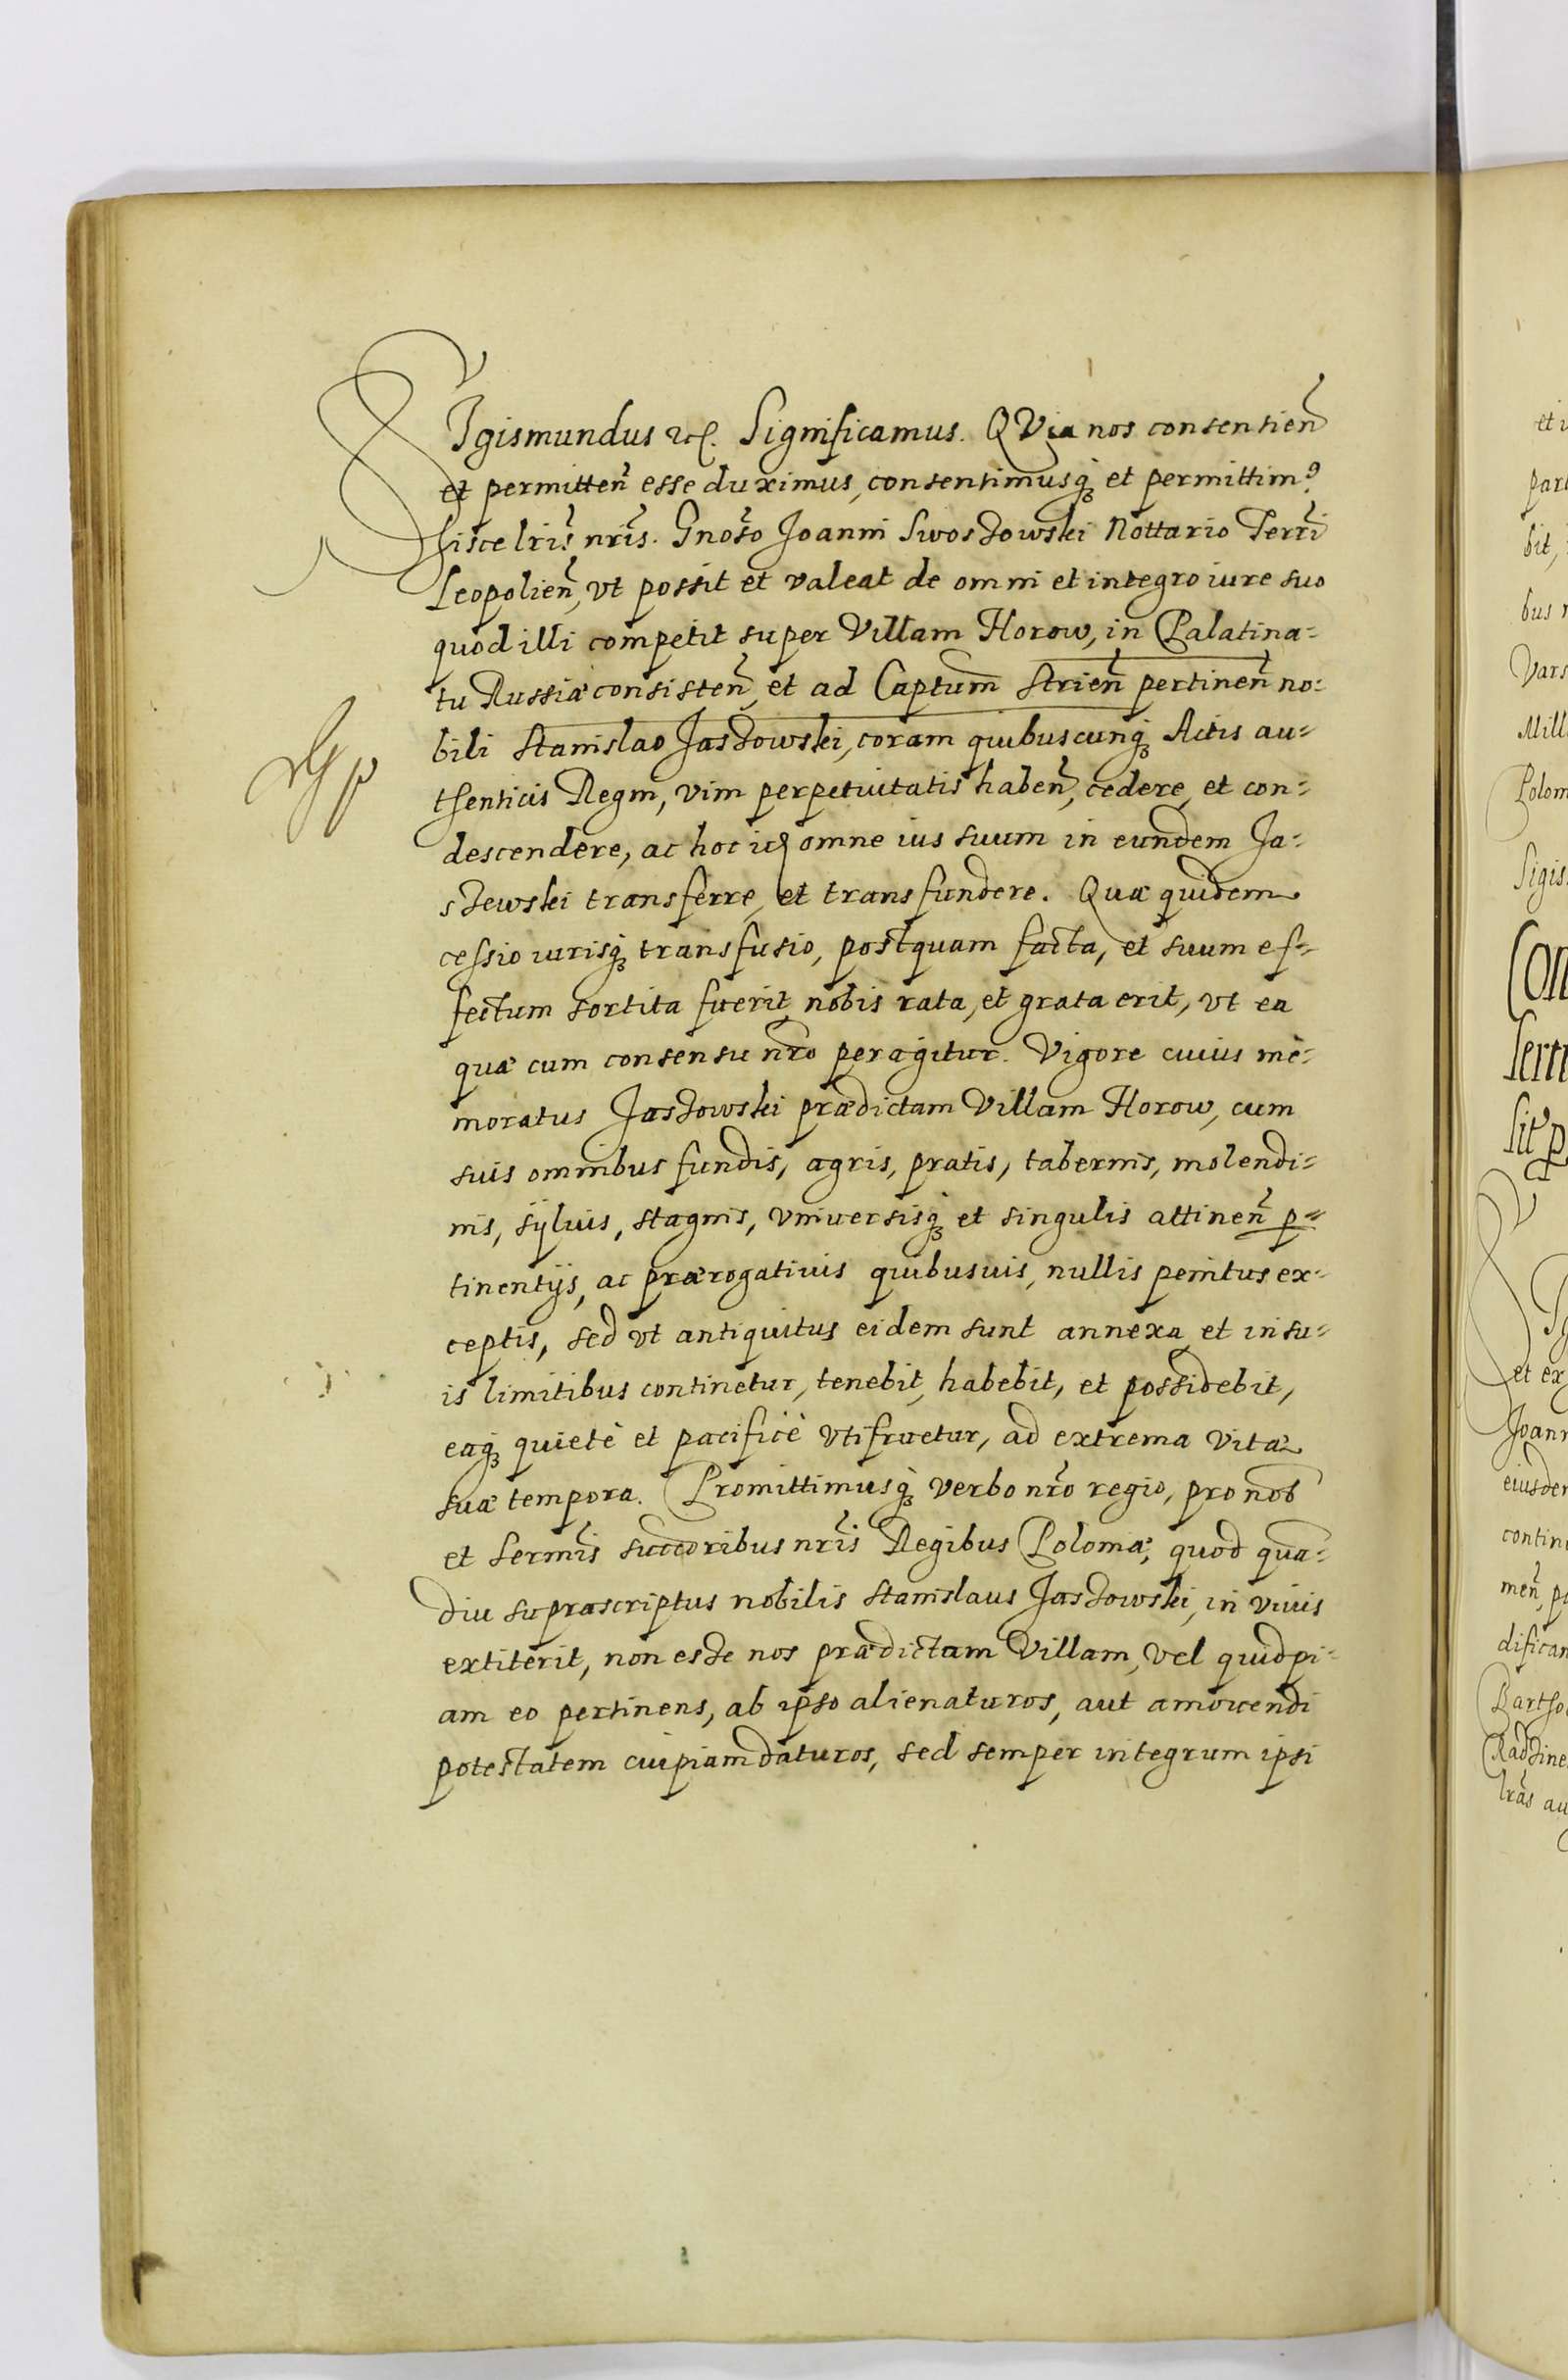 SIgismundus etc. Significamus. QVia nos consentien̄
et permitten̄ esse duximus, consentimusq; et permittim9
hisce lr̄is nr̄is. Gnoso Joanni Swoszowski Nottario Terrī
Leopolien̄, vt possit et valeat de omni et integro iure suo
quod illi competit super Villam Horow, in Palatina-
tu Russiæ consisten̄, et ad Captum̄ Strien̄ pertinen̄ no-
bili Stanislao Jaszowski, coram quibuscunq; Actis au-
thenticis Regni, vim perpetuitatis haben̄, cedere, et con-
descendere, ac hoc omne ius suum in eundem Ja-
szewski transferre, et transfundere. Quæ quidem
cessio iurisq; transfusio, postquam facta, et suum ef-
fectum sortita fuerit, nobis rata, et grata erit, vt ea
quæ cum consensu nr̄o peragitur. Vigore cuius me-
moratus Jaszowski prædictam Villam Horow, cum
suis omnibus fundis, agris, pratis, tabernis, molendi-
nis, syluis, stagnis, vniuersisq; et singulis attinen̄ p-
tinentijs, ac prærogatiuis quibusuis, nullis penitus ex-
ceptis, sed vt antiquitus eidem sunt annexa, et in su-
is limitibus continetur, tenebit, habebit, et possidebit,
eaq; quietè et pacificè vtifruetur, ad extrema vitæ
suæ tempora. Promittimusq; verbo nr̄o regio, pro nob
et Sermīs succoribus nr̄is Regibus Poloniæ, quod qua-
diu suprascriptus nobilis Stanislaus Jaszowski, in viuis
extiterit, non esse nos prædictam Villam, vel quidpi-
am eo pertinens, ab ipso alienaturos, aut amouendi
potestatem cuipiam daturos, sed semper integrum ipsi